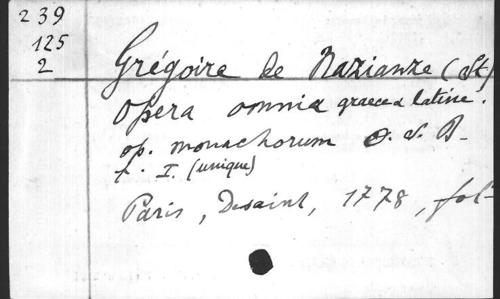 239
125
2
Grégoire de Nazianze (St)
Opera omnia graece & latine.
op. monachorum O. S. B.
t. I. (unique)
Paris, Desaint, 1778, fol-